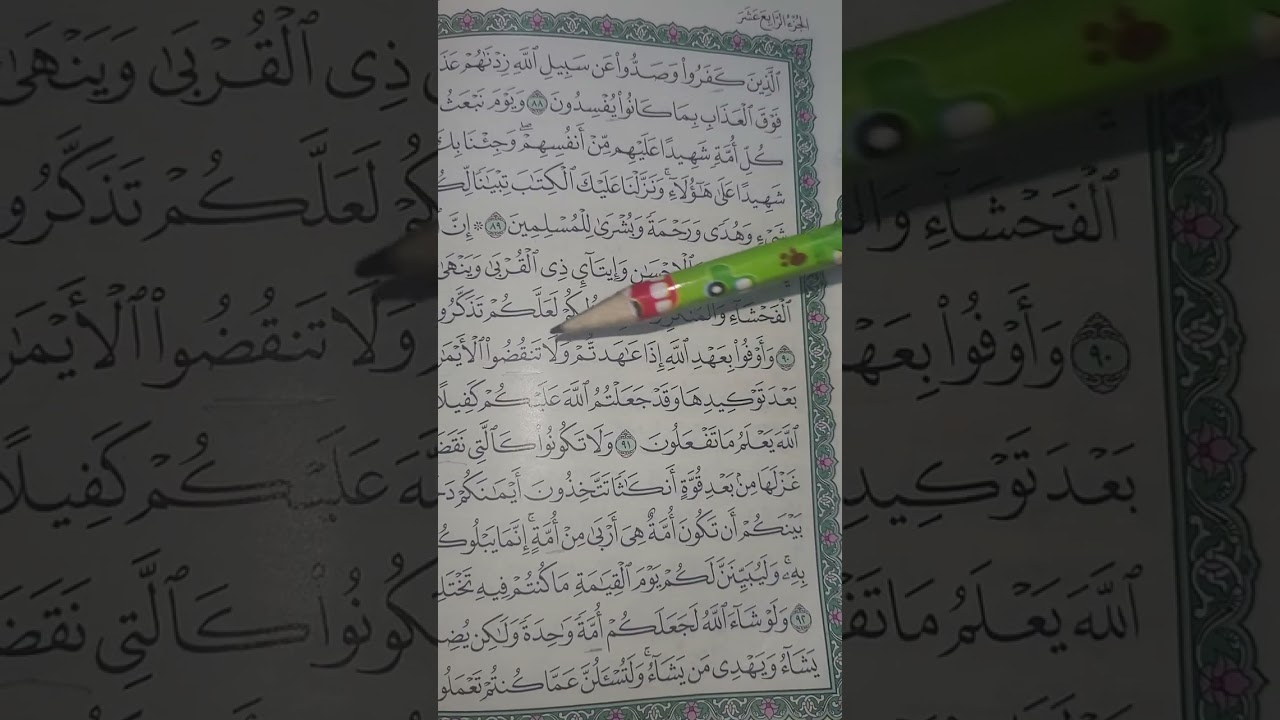 الجزء الرابع عشر
الَّذِينَ كَفَرُوا۟ وَصَدُّوا۟ عَن سَبِيلِ ٱللَّهِ زِدْنَٰهُمْ
فَوْقَ ٱلْعَذَابِ بِمَا كَانُوا۟ يُفْسِدُونَ ٨٨ وَيَوْمَ نَبْعَثُ
كُلِّ أُمَّةٍ شَهِيدًا عَلَيْهِم مِّنْ أَنفُسِهِمْ ۖ وَجِئْنَا
شَهِيدًا عَلَىٰ هَٰٓؤُلَآءِ ۚ وَنَزَّلْنَا عَلَيْكَ ٱلْكِتَٰبَ تِبْيَٰنًا
شَىْءٍ وَهُدًى وَرَحْمَةً وَبُشْرَىٰ لِلْمُسْلِمِينَ ٨٩ ۞ إِنَّ
وَإِيتَآئِ ذِى ٱلْقُرْبَىٰ وَيَنْهَىٰ
ٱلْفَحْشَآءِ لَعَلَّكُمْ تَذَكَّرُو
٩٠ وَأَوْفُوا۟ بِعَهْدِ ٱللَّهِ إِذَا عَٰهَدتُّمْ وَلَا تَنقُضُوا۟ ٱلْأَيْمَٰنَ
بَعْدَ تَوْكِيدِهَا وَقَدْ جَعَلْتُمُ ٱللَّهَ عَلَيْكُمْ كَفِيلًا
ٱللَّهَ يَعْلَمُ مَا تَفْعَلُونَ ٩١ وَلَا تَكُونُوا۟ كَٱلَّتِى نَقَضَ
غَزْلَهَا مِنۢ بَعْدِ قُوَّةٍ أَنكَٰثًا تَتَّخِذُونَ أَيْمَٰنَكُمْ
بَيْنَكُمْ أَن تَكُونَ أُمَّةٌ هِىَ أَرْبَىٰ مِنْ أُمَّةٍ ۚ إِنَّمَا يَبْلُوكُ
بِهِۦ ۚ وَلَيُبَيِّنَنَّ لَكُمْ يَوْمَ ٱلْقِيَٰمَةِ مَا كُنتُمْ فِيهِ تَخْتَلِ
٩٢ وَلَوْ شَآءَ ٱللَّهُ لَجَعَلَكُمْ أُمَّةً وَٰحِدَةً وَلَٰكِن يُضِ
يَشَآءُ وَيَهْدِى مَن يَشَآءُ ۚ وَلَتُسْـَٔلُنَّ عَمَّا كُنتُمْ تَعْمَلُو